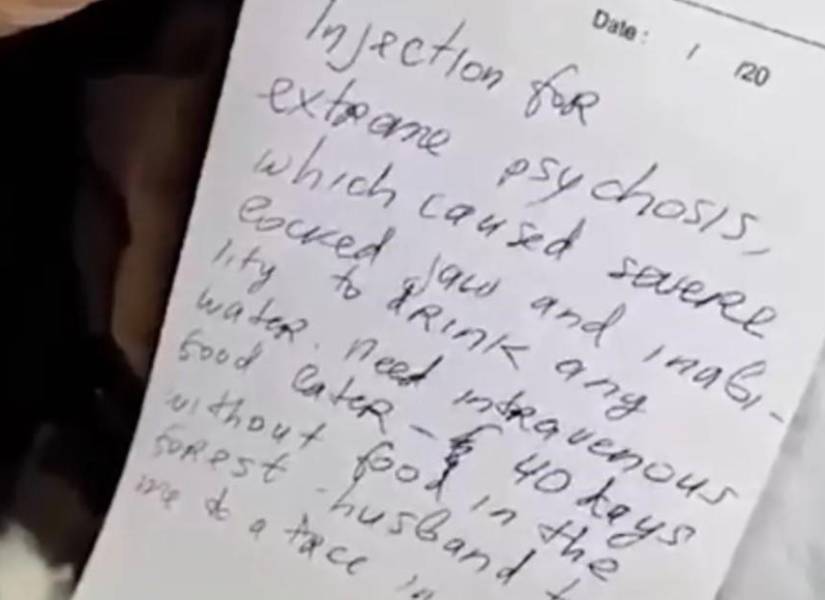 Date: / /20
Injection for
extreme psychosis,
which caused severe
locked jaw and inabi-
lity to drink any
water. need intravenous
food later - 40 days
without food in the
forest. husband t
me to a tree in